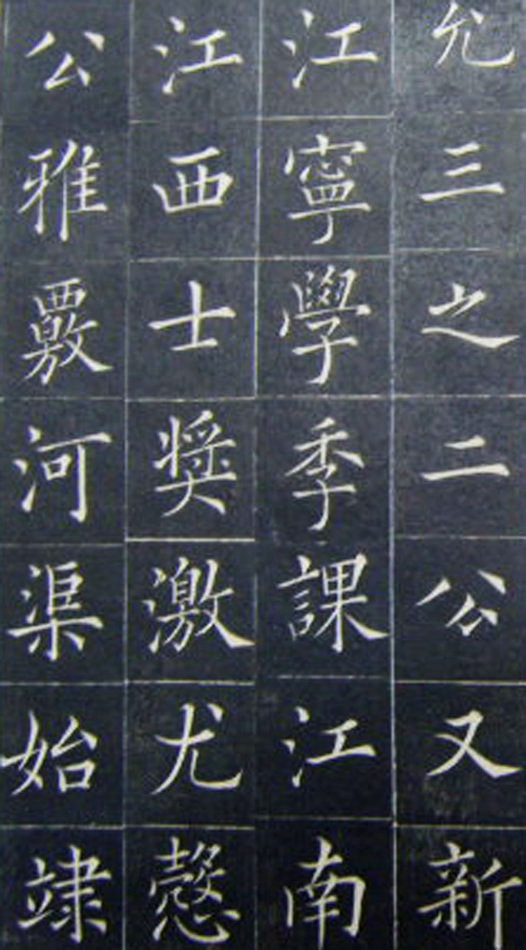 允三之二公又新
江寧學季課江南
江西士獎激尤慤
公雅覈河渠始隷